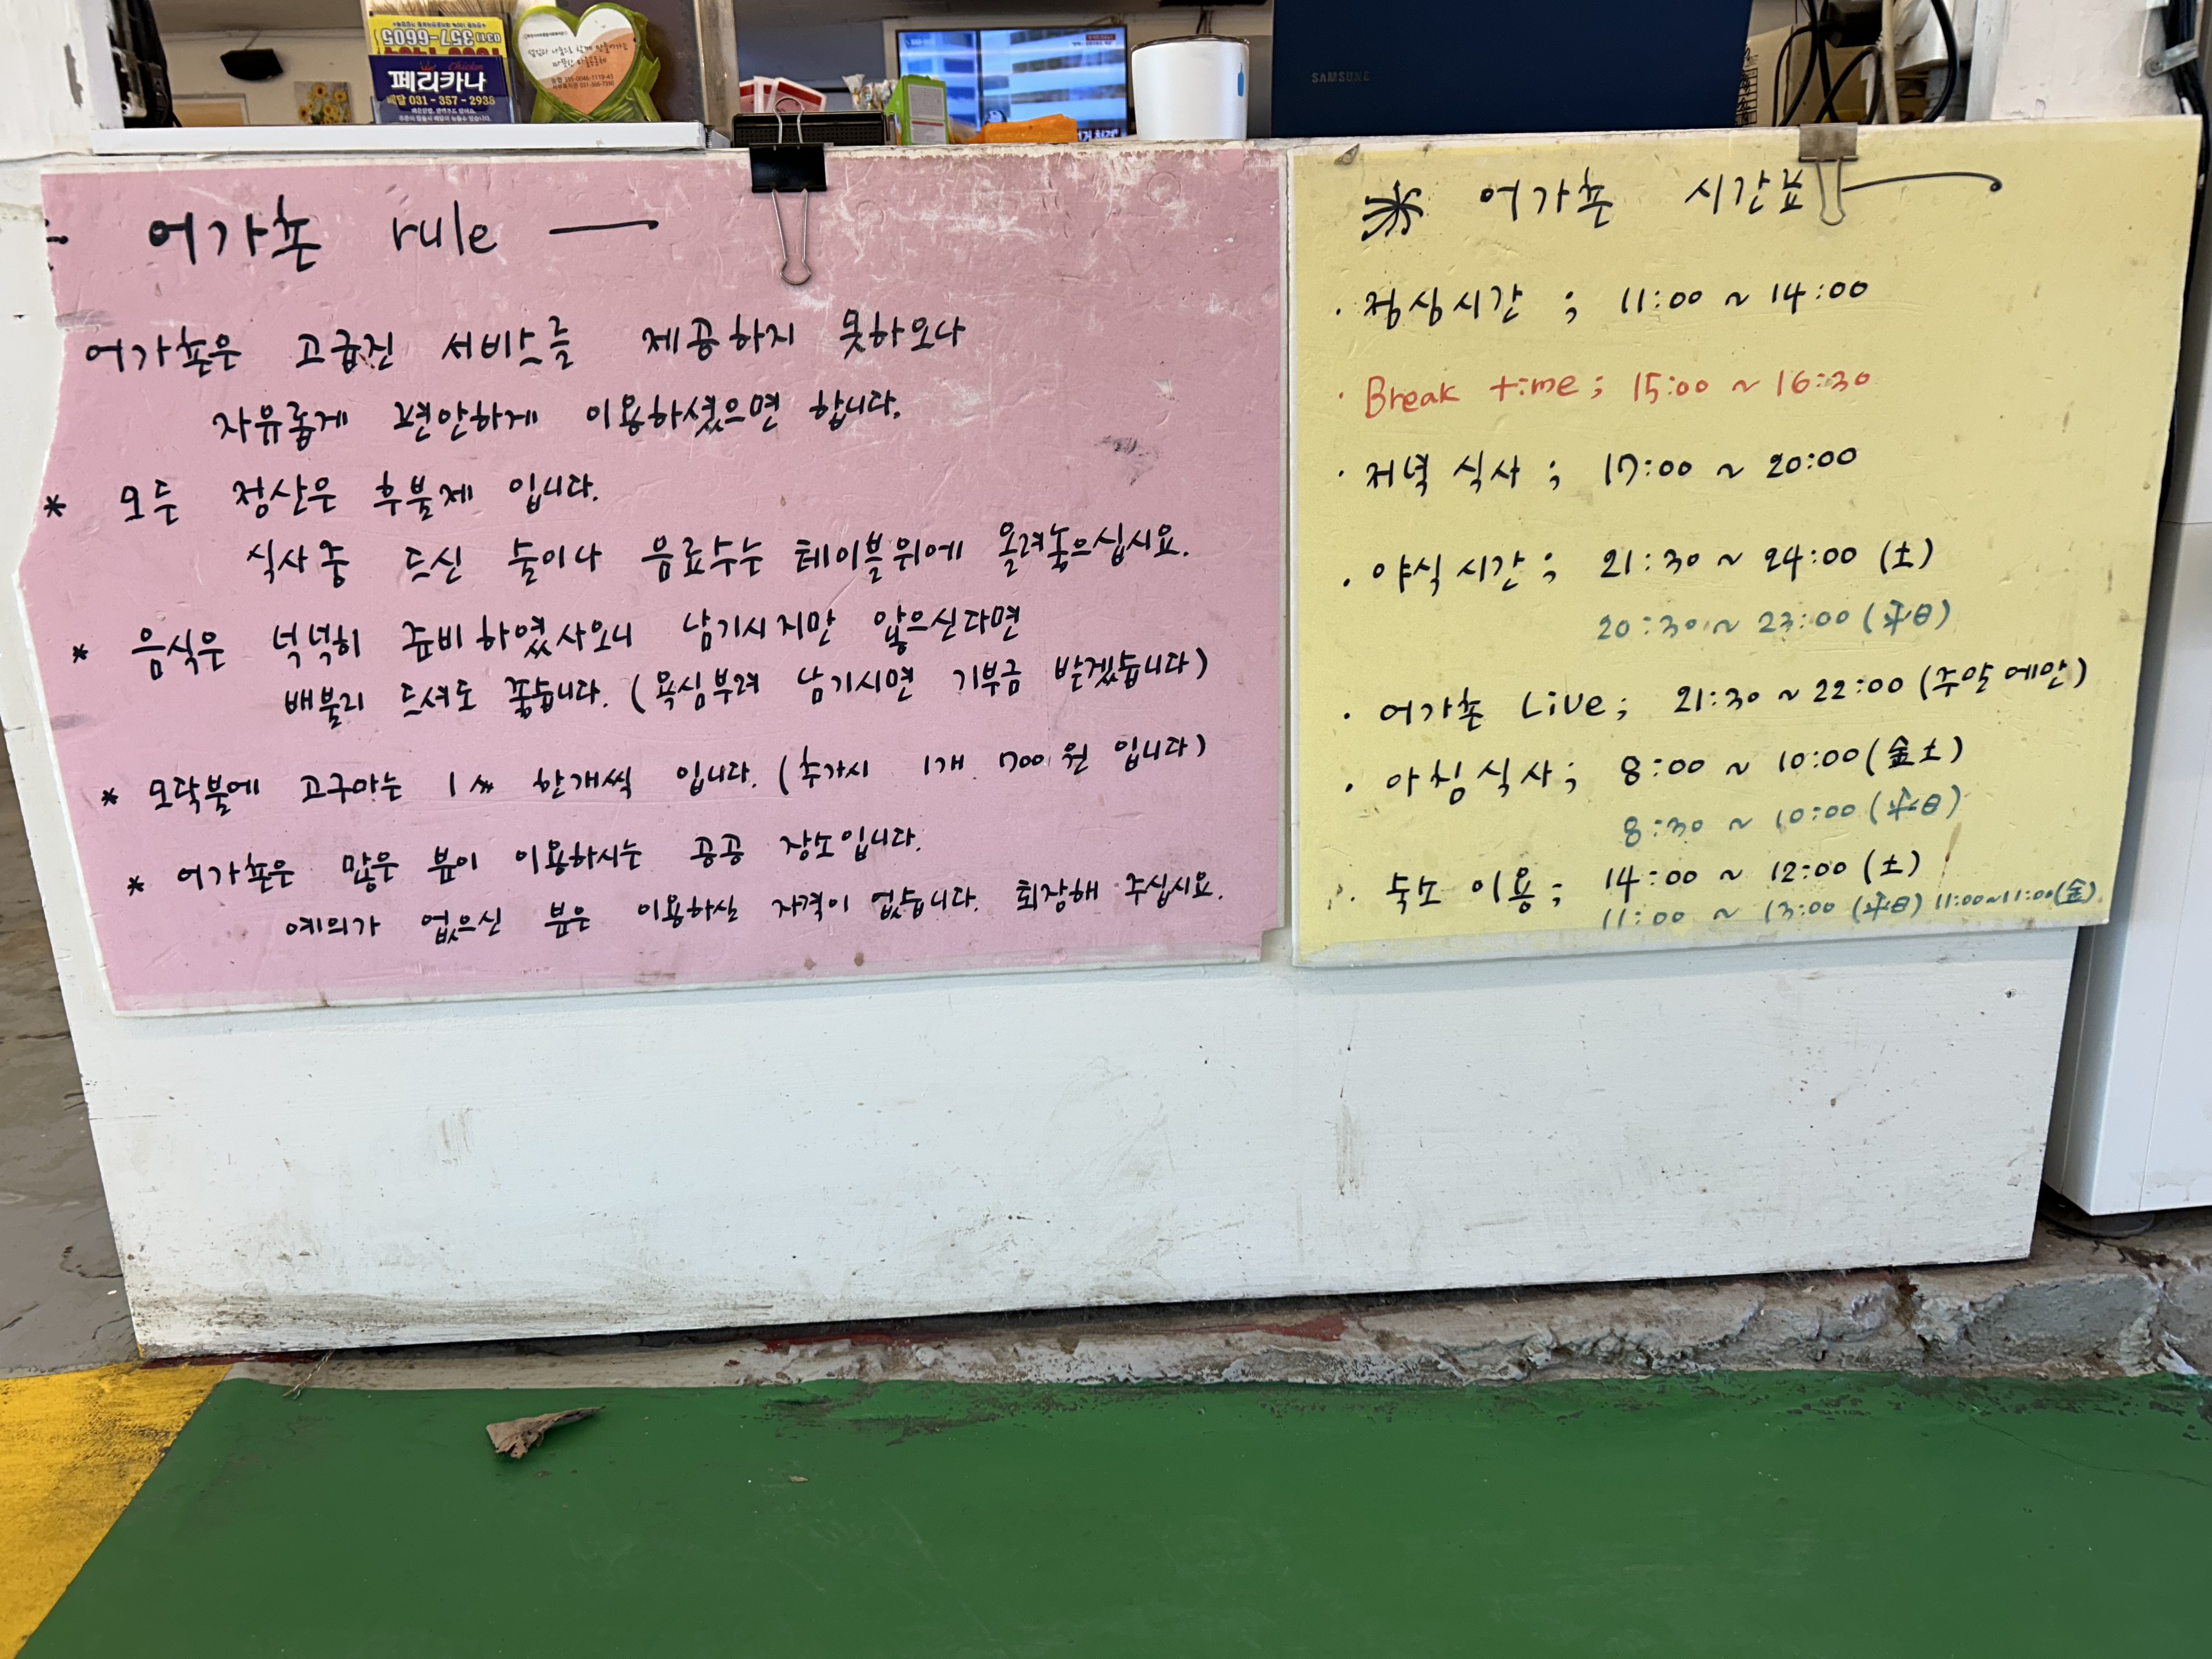 (031) 357-6605
Chicken
페리카나
배달 031 - 357 - 2938
SAMSUNG
어가촌 rule
어가촌은 고급진 서비스를 제공하지 못하오나
자유롭게 편안하게 이용하셨으면 합니다.
* 모두 정산은 후불제 입니다.
식사중 드신 술이나 음료수는 테이블위에 올려놓으십시요.
* 음식은 넉넉히 준비하였사오니 남기시지만 않으신다면
배불리 드셔도 좋습니다. (욕심부려 남기시면 기부금 받겠습니다)
* 모닥불에 고구마는 1人 한개씩 입니다. (추가시 1개 700원 입니다)
* 어가촌은 많은 분이 이용하시는 공공 장소입니다.
예의가 없으신 분은 이용하실 자격이 없습니다. 퇴장해 주십시요.
※ 어가촌 시간표
· 점심시간 ; 11:00 ~ 14:00
· Break time ; 15:00 ~ 16:30
· 저녁 식사 ; 17:00 ~ 20:00
· 야식시간 ; 21:30 ~ 24:00 (土)
20:30 ~ 23:00 (平日)
· 어가촌 Live ; 21:30 ~ 22:00 (주말에만)
· 아침식사 ; 8:00 ~ 10:00 (金土)
8:30 ~ 10:00 (平日)
· 숙소 이용 ; 14:00 ~ 12:00 (土)
11:00 ~ 13:00 (平日) 11:00~11:00(金)